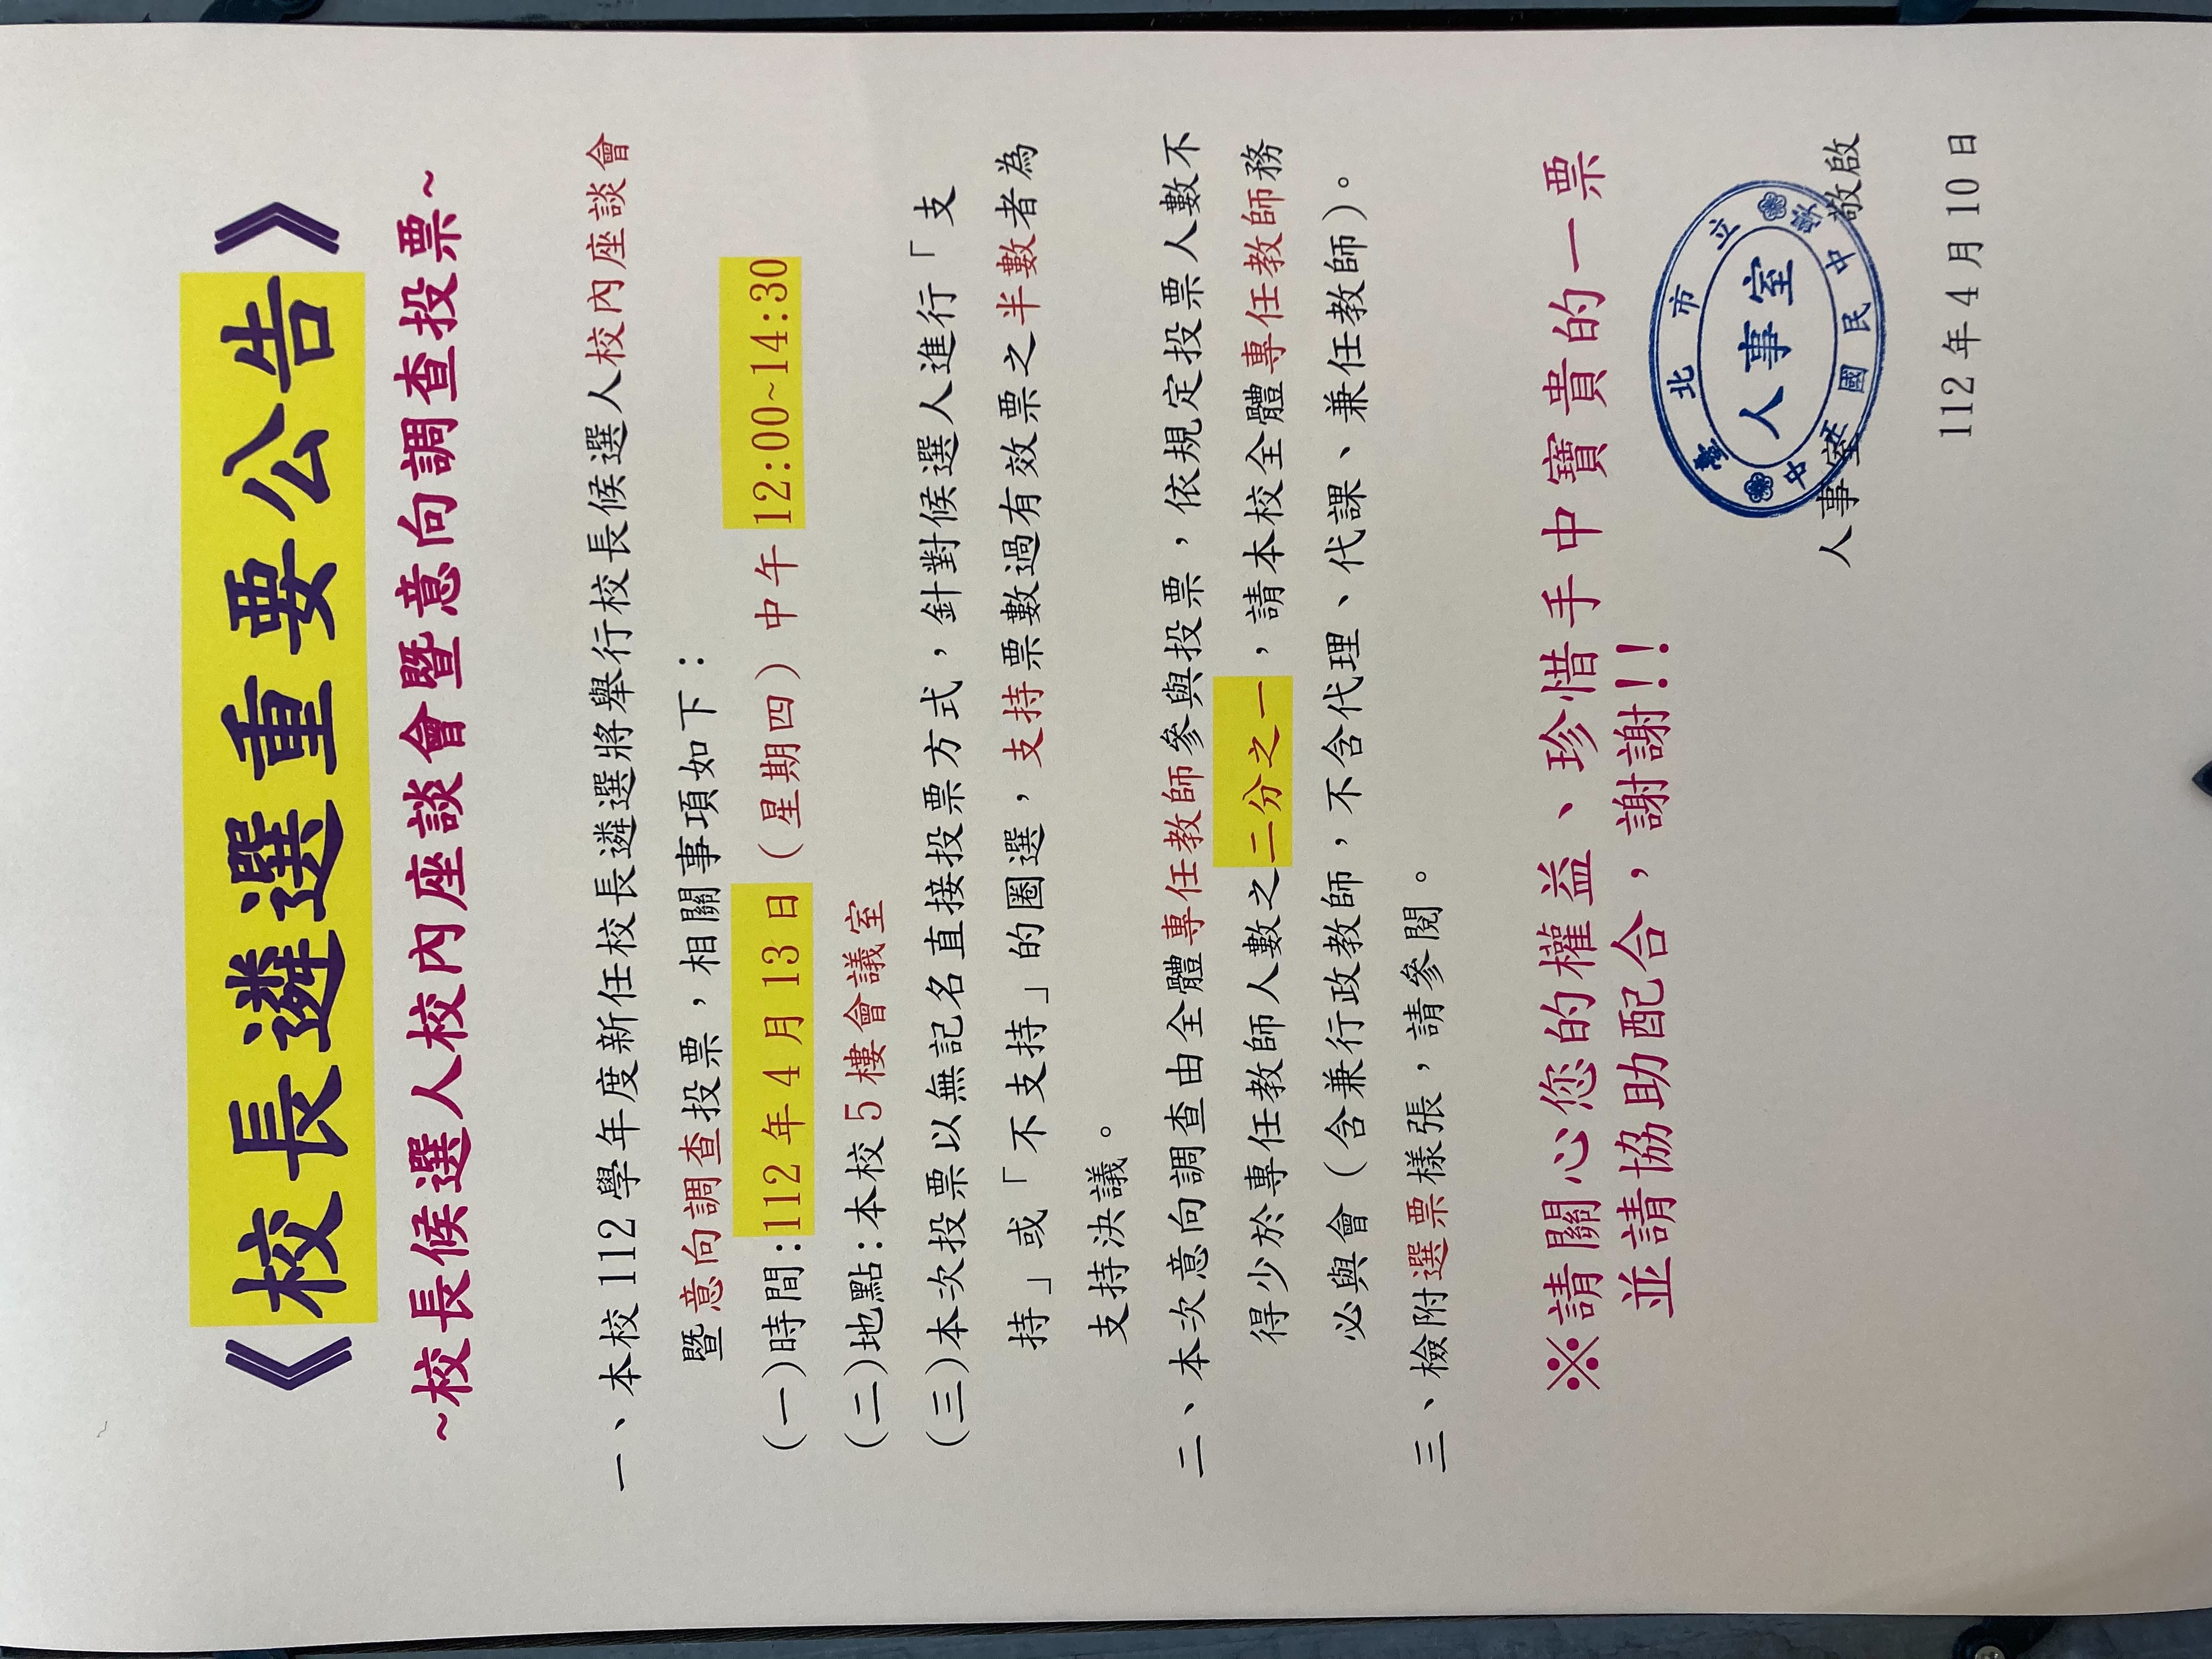 《校長遴選重要公告》
~校長候選人校內座談會暨意向調查投票~
一、本校112學年度新任校長遴選將舉行校長候選人校內座談會
暨意向調查投票，相關事項如下：
(一)時間:112年4月13日（星期四）中午12:00~14:30
(二)地點:本校5樓會議室
(三)本次投票以無記名直接投票方式，針對候選人進行「支
持」或「不支持」的圈選，支持票數過有效票之半數者為
支持決議。
二、本次意向調查由全體專任教師參與投票，依規定投票人數不
得少於專任教師人數之二分之一，請本校全體專任教師務
必與會（含兼行政教師，不含代理、代課、兼任教師）。
三、檢附選票樣張，請參閱。
※請關心您的權益、珍惜手中寶貴的一票
並請協助配合，謝謝!!
臺北市立
人事室
中正國民中學
人事室 敬啟
112年4月10日